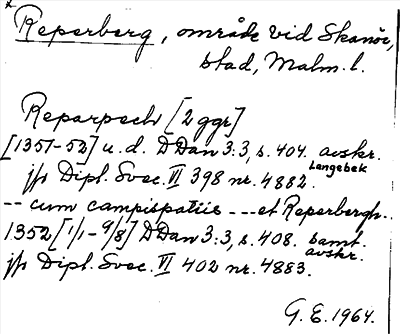 Reperberg, område vid Skanör,
stad, Malm. l.
Reparpech [2 ggr]
[1351-52] u. d. DDan 3:3, s. 404. avskr.
Langebek
jfr Dipl. Svec. VI 398 nr. 4882.
-- cum campispatiis --- et Reperbergh..
1352 [1/1-9/8] DDan 3:3, s. 408. samt.
avskr.
jfr Dipl. Svec. VI 402 nr. 4883.
G. E. 1964.